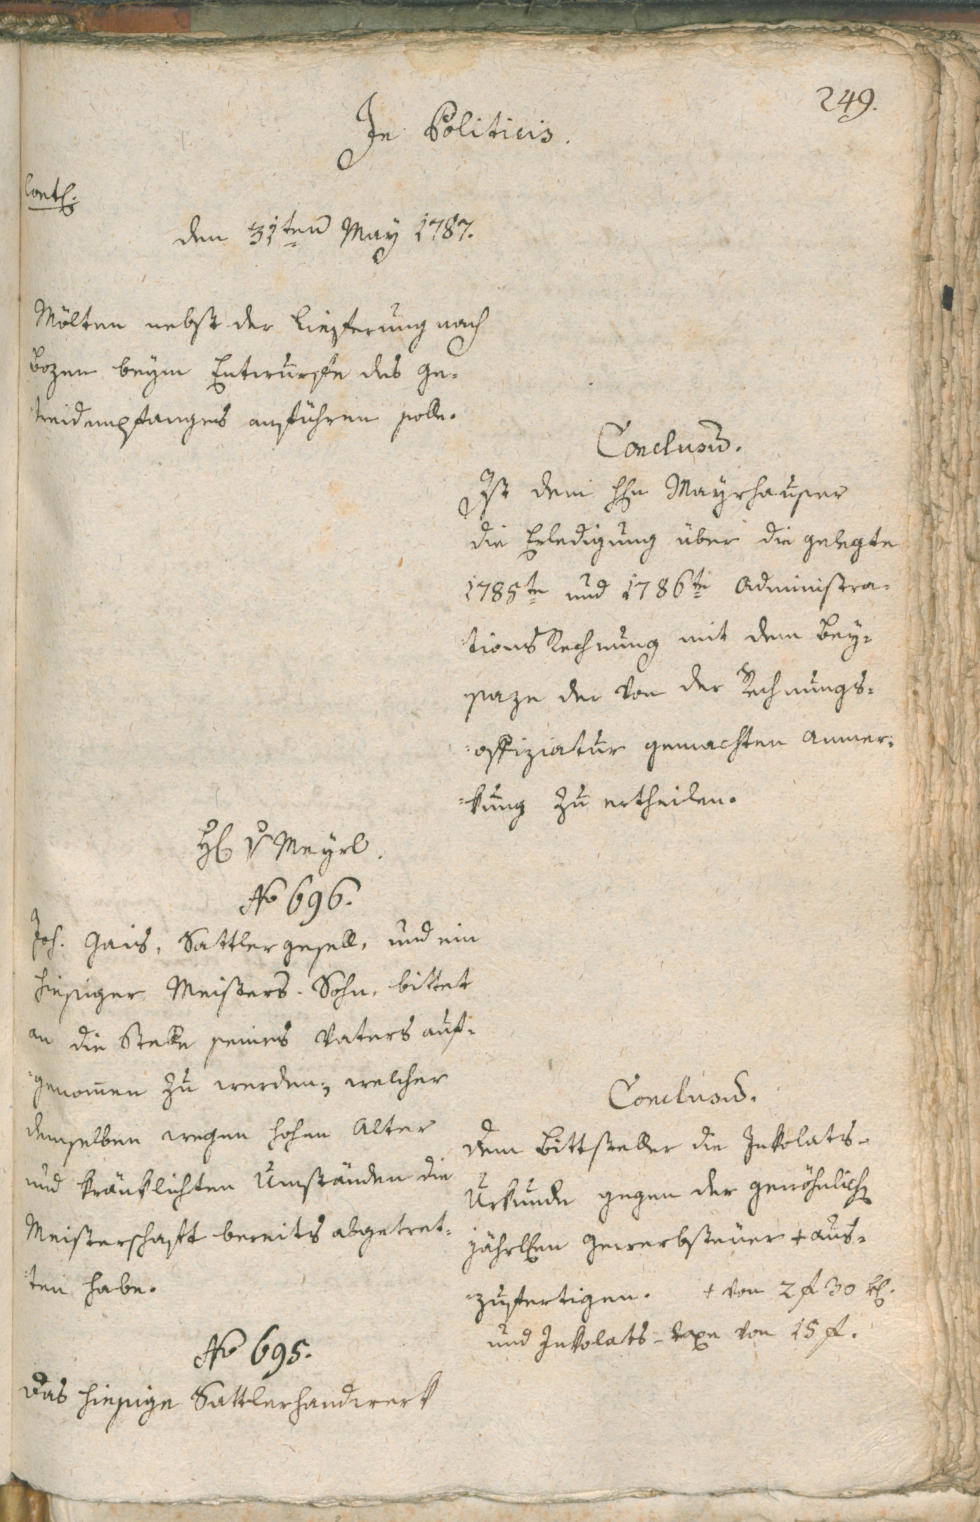 249.
In Politicis.
Cont:
den 31ten May 1787.
Mölten nebst der Liefferung nach
Bozen beym Entwurffe des Ge-
treidempfanges anführen solle.
Conclusum.
Ist dem Hhn Mayrhauser
die Erledigung über die gelegte
1785te und 1786te Administra-
tions Rechnung mit dem Bey-
saze der von der Rechnungs-
offiziatur gemachten Anmer-
kung zu ertheilen.
H v Meyrl.
No 696.
Joh. Gais, Sattlergesell, und ein
hiesiger Meisters-Sohn, bittet
an die Stelle seines Vaters auf-
genomen zu werden, welcher
demselben wegen hohen Alter
und kränklichten Umständen die
Meisterschaft bereits abgetret-
ten habe.
Conclusum.
Dem Bittsteller die Inkolats-
Urkunde gegen der gewöhnlich
jährlichen Gewerbsteuer + aus-
zufertigen. + von 2 f 30 kr.
und Inkolats-Taxe von 15 f.
No 695.
Das hiesige Sattlerhandwerk